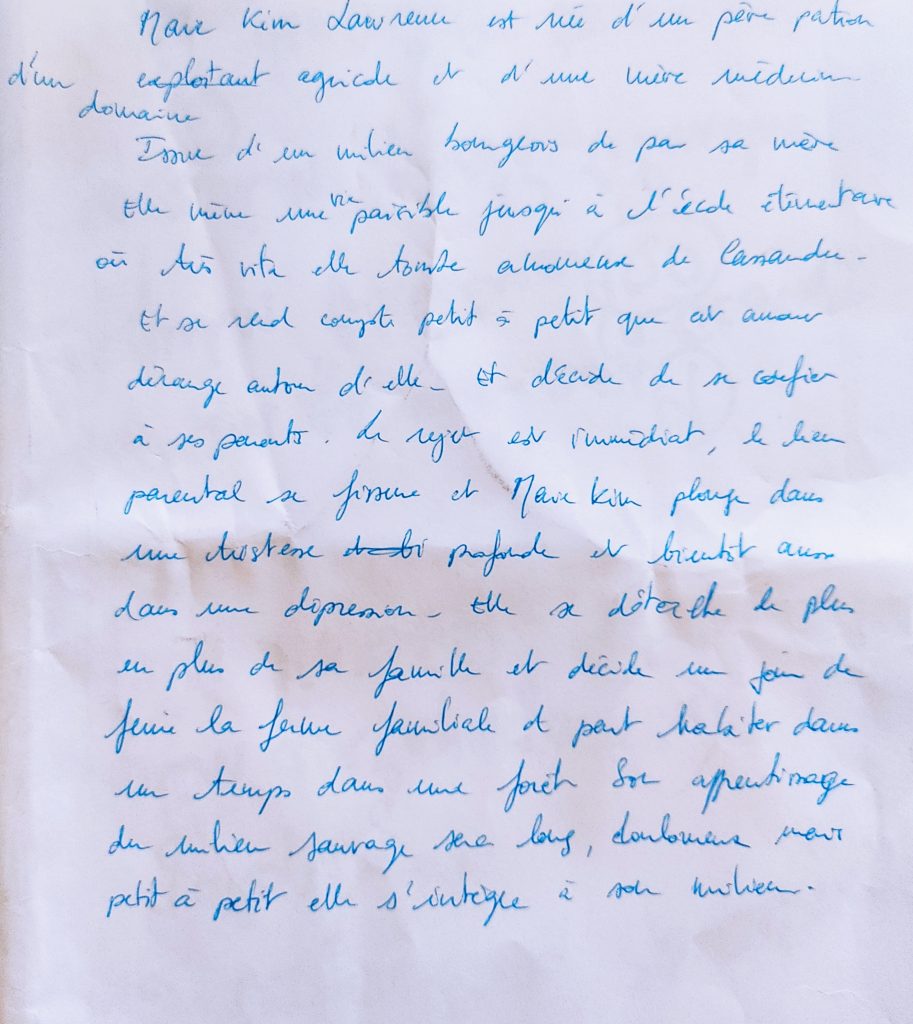 Marie Kim Lawrence est née d'un père patron
d'un exploitant agricole et d'une mère médecin
domaine
Issue d'un milieu bourgeois de par sa mère
Elle mène une vie paisible jusqu'à l'école élémentaire
où très vite elle tombe amoureuse de Cassandre.
Et se rend compte petit à petit que cet amour
dérange autour d'elle. Et décide de se confier
à ses parents. Le rejet est immédiat, le lien
parental se fissure et Marie Kim plonge dans
une tristesse profonde et bientôt aussi
dans une dépression. Elle se détache de plus
en plus de sa famille et décide un jour de
fuir la ferme familiale et part habiter dans
un temps dans une forêt Son apprentissage
du milieu sauvage sera long, douloureux mais
petit à petit elle s'intègre à son milieu.